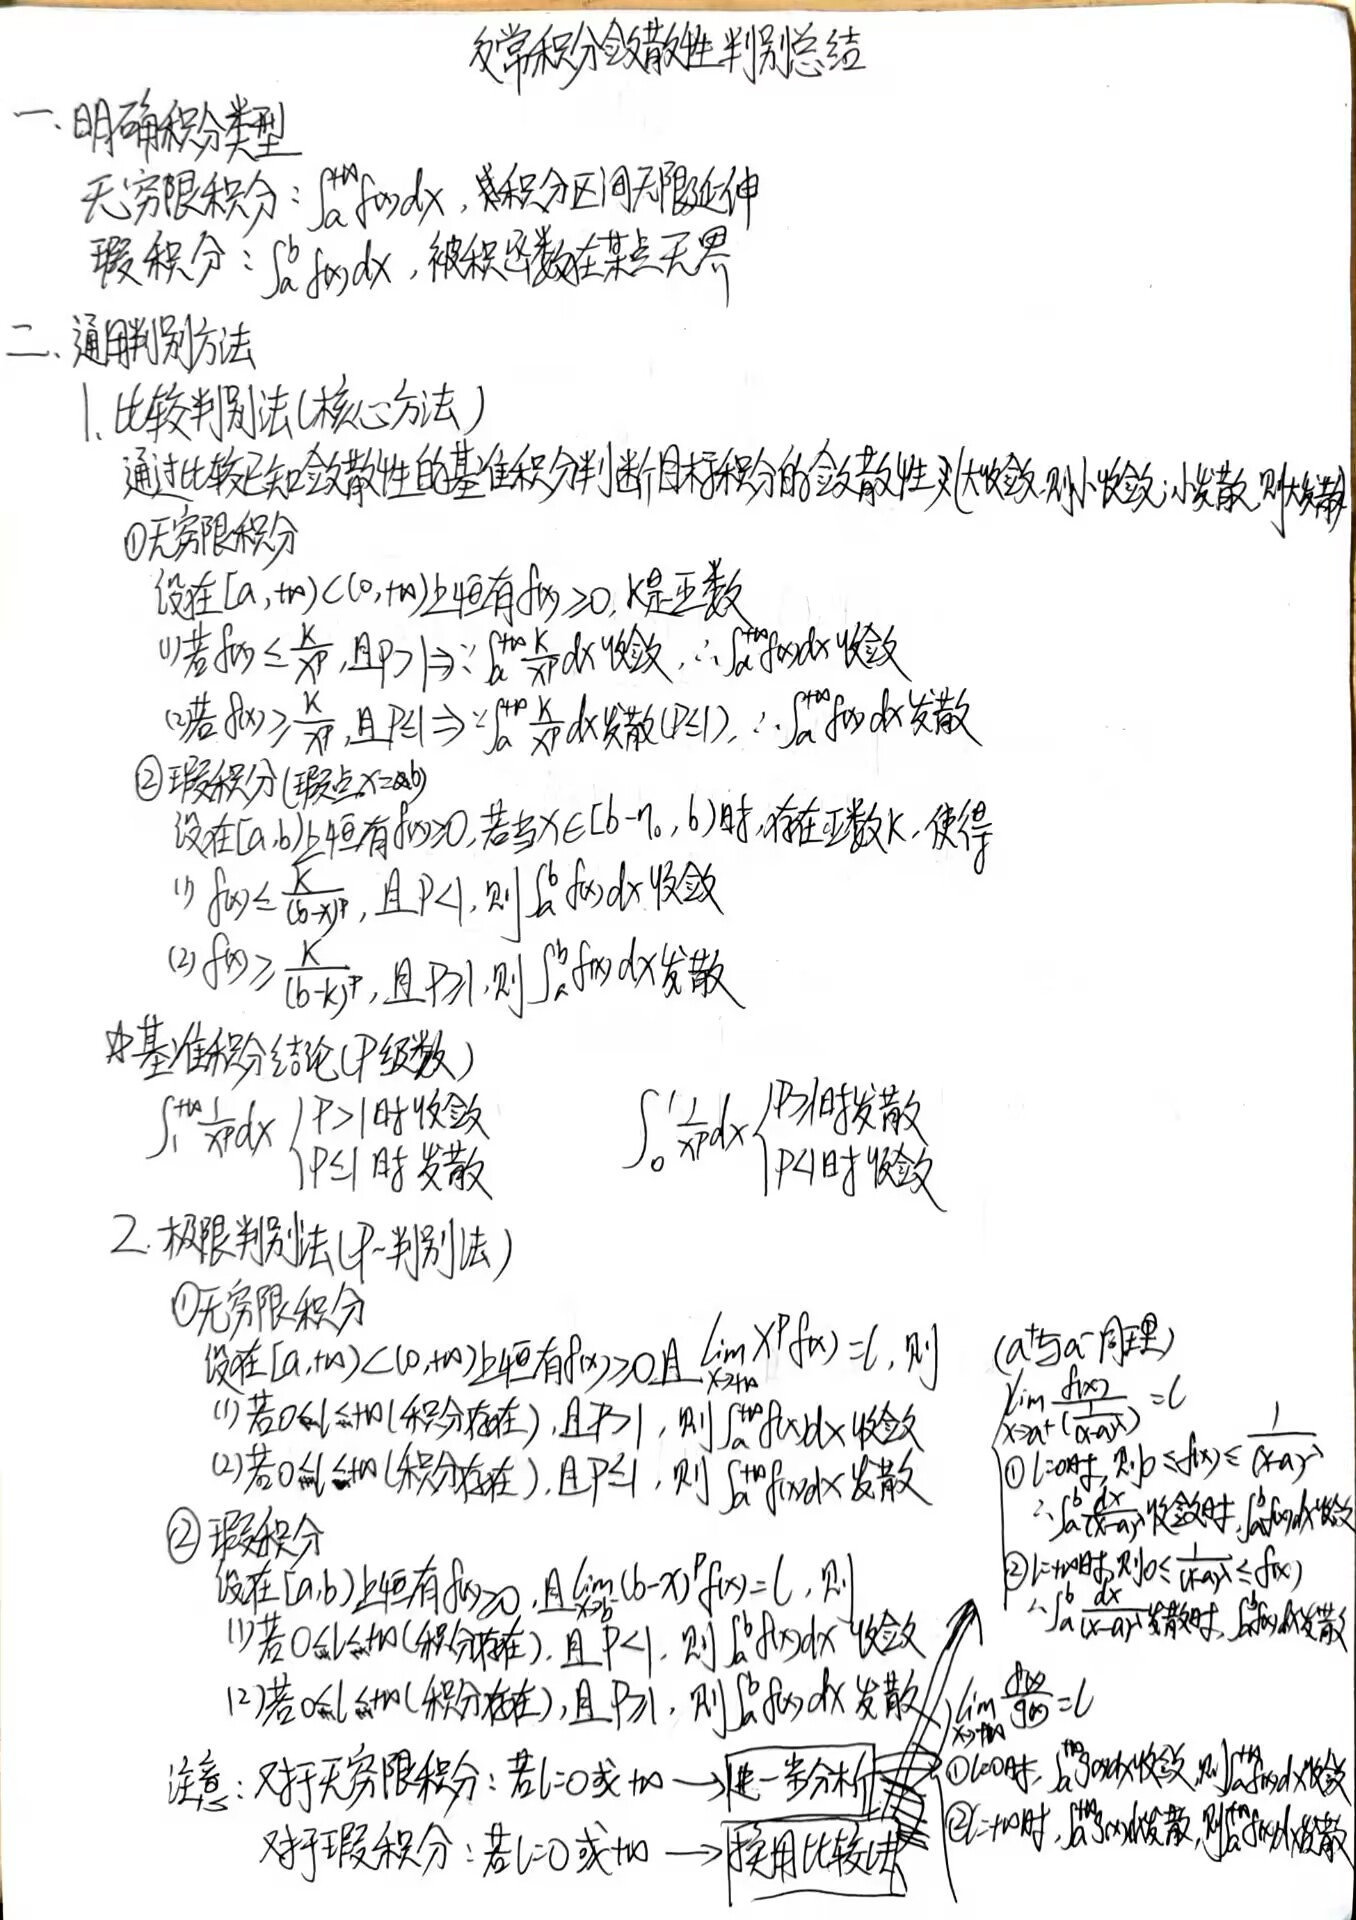 反常积分敛散性判别总结
一、明确积分类型
无穷限积分：∫ₐ⁺∞ f(x)dx，积分区间无限延伸
瑕积分：∫ₐᵇ f(x)dx，被积函数在某点无界
二、通用判别方法
1.比较判别法(核心方法)
通过比较已知敛散性的基准积分判断目标积分的敛散性 大收敛，则小收敛；小发散，则大发散
①无穷限积分
设在[a,+∞)⊂(0,+∞)上恒有f(x)≥0，K是正数
(1)若f(x)≤K/xᵖ，且P>1⇒∵∫ₐ⁺∞ K/xᵖ dx收敛，∴∫ₐ⁺∞ f(x)dx收敛
(2)若f(x)≥K/xᵖ，且P≤1⇒∵∫ₐ⁺∞ K/xᵖ dx发散(P≤1)，∴∫ₐ⁺∞ f(x)dx发散
②瑕积分(瑕点x=b)
设在[a,b)上恒有f(x)≥0，若当x∈[b-η₀,b)时，存在正数K，使得
(1) f(x)≤K/(b-x)ᵖ，且P<1，则∫ₐᵇ f(x)dx收敛
(2) f(x)≥K/(b-k)ᵖ，且P≥1，则∫ₐᵇ f(x)dx发散
☆基准积分结论(P级数)
∫₁⁺∞ 1/xᵖ dx { P>1时收敛 ∫₀¹ 1/xᵖ dx { P≥1时发散
P≤1时发散 P<1时收敛
2.极限判别法(P-判别法)
①无穷限积分
设在[a,+∞)⊂(0,+∞)上恒有f(x)≥0，且lim x→+∞ xᵖf(x)=l，则
(1)若0≤l≤+∞(积分存在)，且P>1，则∫ₐ⁺∞ f(x)dx收敛
(2)若0≤l≤+∞(积分存在)，且P≤1，则∫ₐ⁺∞ f(x)dx发散
②瑕积分
设在[a,b)上恒有f(x)≥0，且lim x→b⁻ (b-x)ᵖf(x)=l，则
(1)若0≤l≤+∞(积分存在)，且P<1，则∫ₐᵇ f(x)dx收敛
(2)若0≤l≤+∞(积分存在)，且P≥1，则∫ₐᵇ f(x)dx发散
注意：对于无穷限积分：若l=0或+∞→进一步分析
对于瑕积分：若l=0或+∞→换用比较法
(a⁺与a⁻同理)
lim x→a⁺ f(x)/(1/(x-a)^λ)=l
①l=0时，则0≤f(x)≤1/(x-a)^λ
∴∫ₐᵇ dx/(x-a)^λ收敛时，∫ₐᵇ f(x)dx收敛
②l=+∞时，则0≤1/(x-a)^λ≤f(x)
∴∫ₐᵇ dx/(x-a)^λ发散时，∫ₐᵇ f(x)dx发散
lim x→+∞ f(x)/g(x)=l
①l=0时，∫ₐ⁺∞ g(x)dx收敛，则∫ₐ⁺∞ f(x)dx收敛
②l=+∞时，∫ₐ⁺∞ g(x)dx发散，则∫ₐ⁺∞ f(x)dx发散